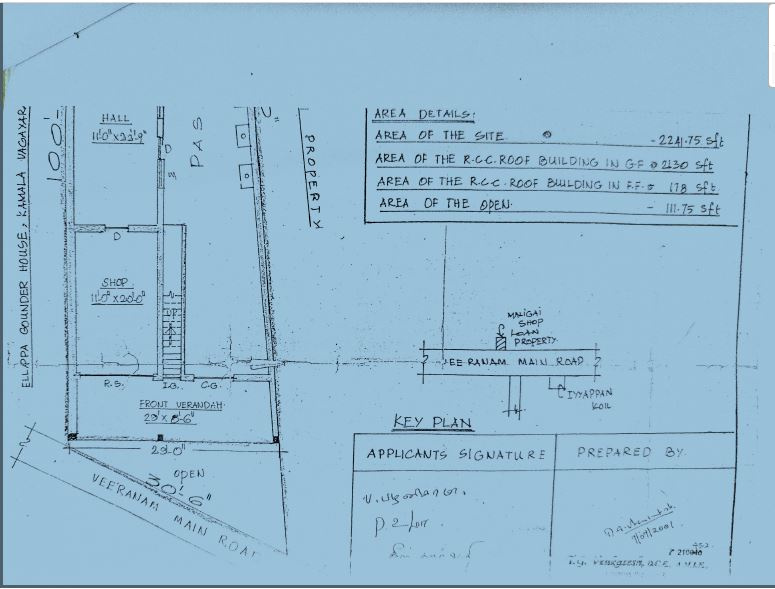 ELLAPPA GOUNDER HOUSE, KAMALA VAGAYAR
100'-
HALL
11'-0" X 23'-9"
D
W
PAS
PROPERTY
D
SHOP
11'-0" X 20'-0"
UP
R.S.
I.G.
C.G.
FRONT VERANDAH
29' X 8'-6"
29'-0"
OPEN
30'-6"
VEERANAM MAIN ROAD
AREA DETAILS:
AREA OF THE SITE - 2241.75 Sft
AREA OF THE R.C.C. ROOF BUILDING IN G.F 2130 Sft
AREA OF THE R.C.C. ROOF BUILDING IN F.F. 178 Sft.
AREA OF THE OPEN - 111.75 Sft
MALIGAI
SHOP
LOAN
PROPERTY
VEERANAM MAIN ROAD
IYYAPPAN
KOIL
KEY PLAN
APPLICANTS SIGNATURE
PREPARED BY